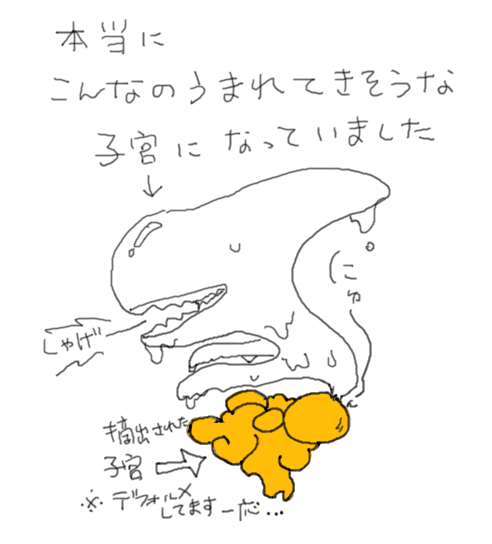 本当に
こんなのうまれてきそうな
子宮になっていました
しゃげ
にゅ
摘出された
子宮
※デフォルメ
してます一応...